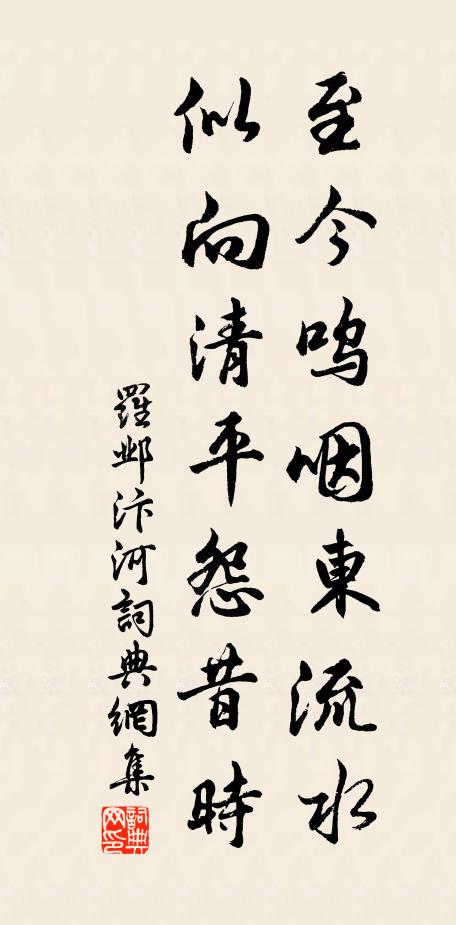 至今鸣咽東流水
似向清平怨昔時
羅邺汴河詞典網集
詞典网印